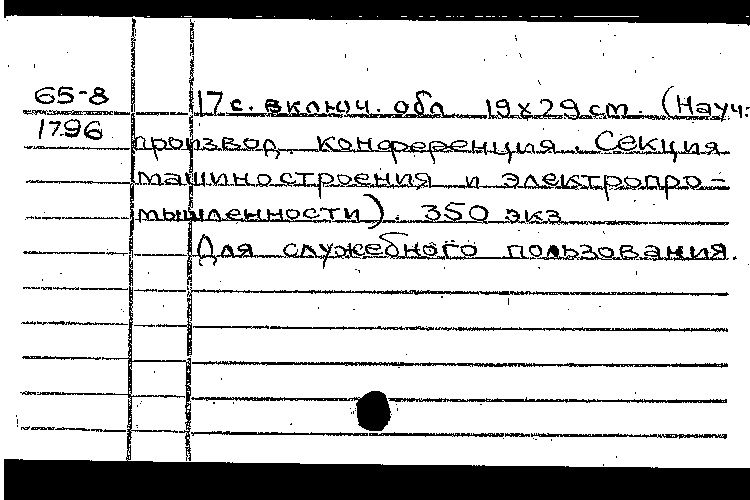 65-8
1796
17 с. включ. обл 19х29 cm. (Науч:
производ. конференция. Секция
машиностроения и электропро-
мышленности). 350 экз
Для служебного пользования.